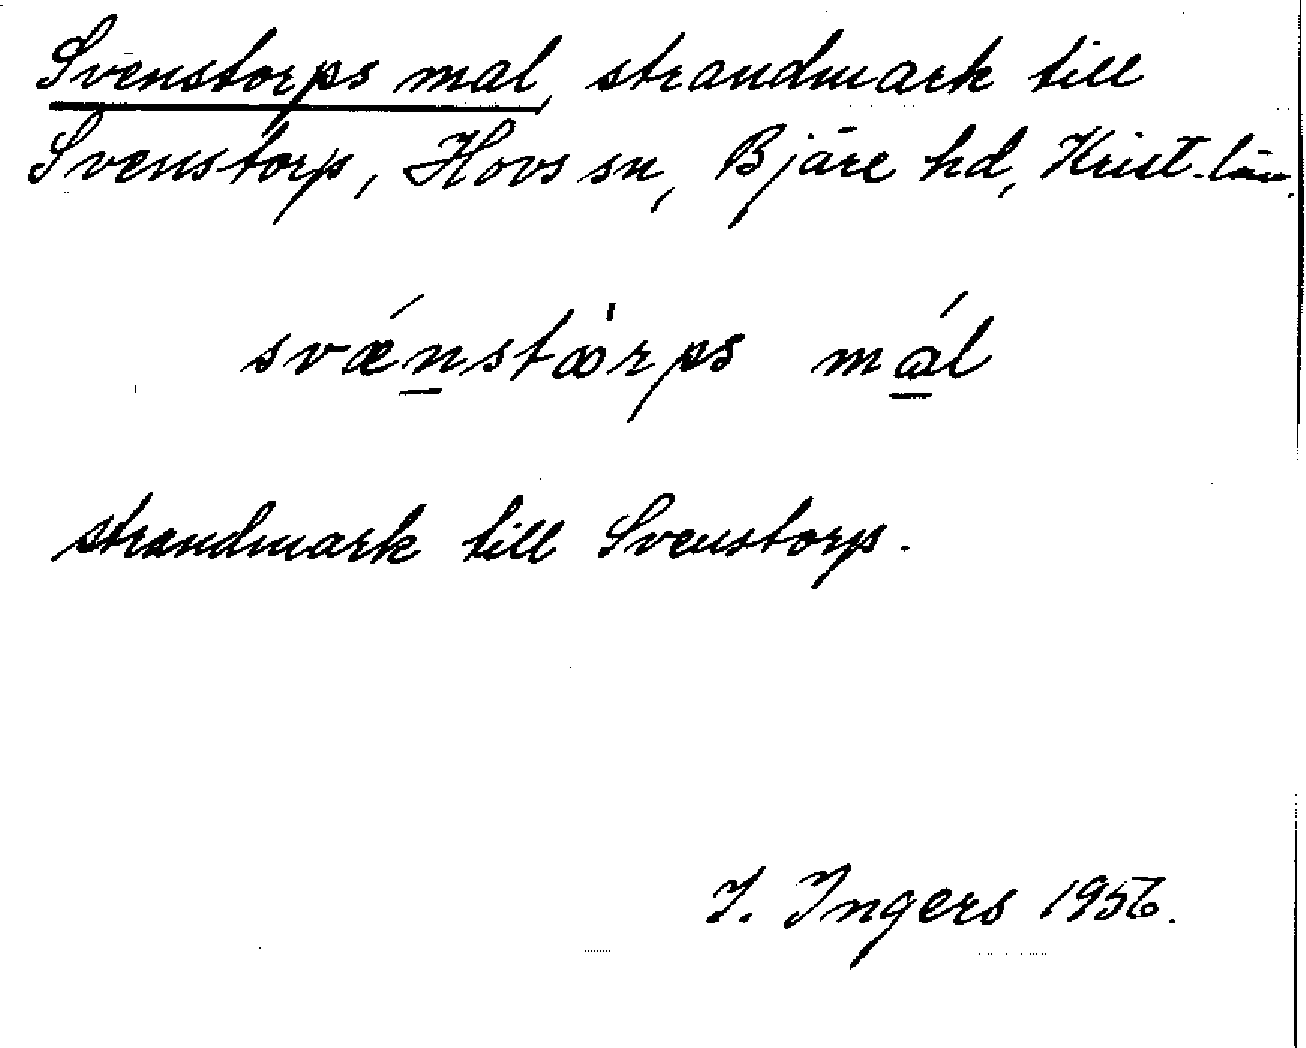 Svenstorps mal, strandmark till
Svenstorp, Hovs sn, Bjäre hd, Krist. län.
svǽnstòrps mál
strandmark till Svenstorp.
I. Ingers 1956.